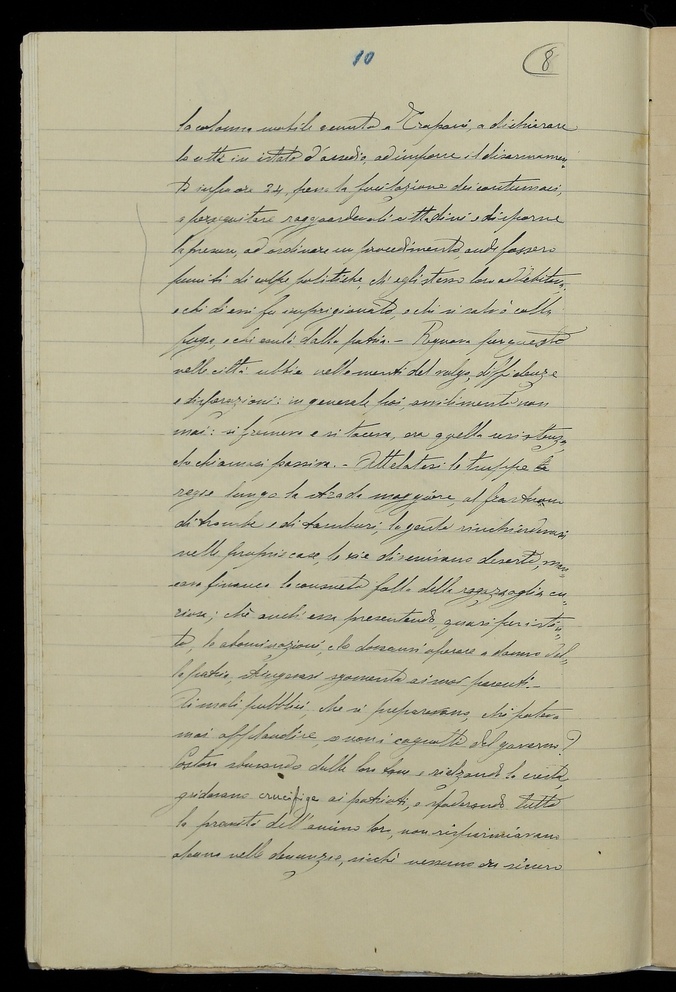 10
8
la colonna mobile venuta a Trapani, a dichiarare
la città in istato d'assedio, ad imporre il disarmamen-
to infra ore 24, pena la fucilazione dei contumaci,
a perquisire ragguardevoli cittadini e disporne
la presura, ad ordinare un procedimento, onde fossero
puniti di colpe politiche, ch'egli stesso loro addebitava,
e chi di essi fu imprigionato, e chi si salvò colla
fuga, e chi esulò dalla patria. — Regnava per questo
nelle città ubbie nelle menti del volgo, diffidenze
e disperazioni: in generale poi, avvilimento non
mai: si fremeva e si taceva, era quella resistenza,
che chiamasi passiva. — Attelatesi le truppe
regie lungo la strada maggiore, al frastuono
di trombe e di tamburi, la gente rinchiudevasi
nelle proprie case, le vie divenivano deserte, man-
cava financo la consueta folla della ragazzaglia cu-
riosa; chè anch'essa presentendo, quasi per istin-
to, le abominazioni, che doveansi operare a danno del-
la patria, stringevasi sgomenta ai suoi parenti. —
Ai mali pubblici, che si preparavano, chi poteva
mai applaudire, se non i cagnotti del governo?
Costoro sbucando dalle loro tane e rialzando la cresta,
gridavano crucifige ai patrioti, e sfoderando tutta
la pravità dell'animo loro, non risparmiavano
alcuno nelle denunzie, sicchè nessuno era sicuro